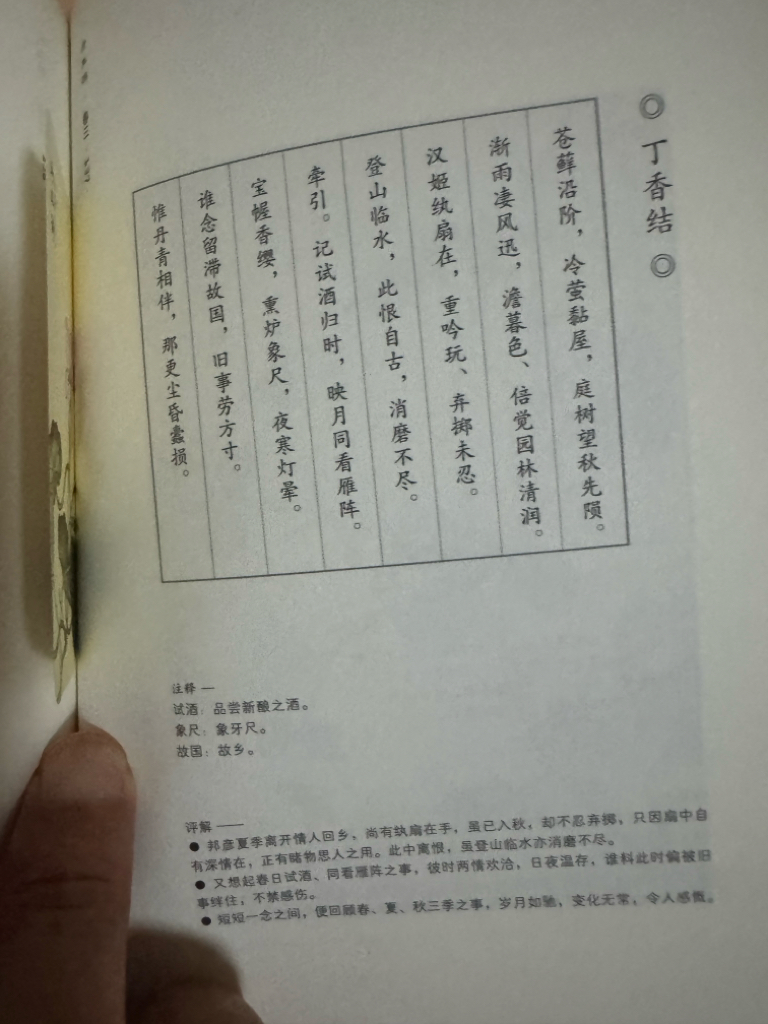 ◎丁香结◎
苍藓沿阶，冷萤黏屋，庭树望秋先陨。
渐雨凄风迅，澹暮色、倍觉园林清润。
汉姬纨扇在，重吟玩、弃掷未忍。
登山临水，此恨自古，消磨不尽。
牵引。记试酒归时，映月同看雁阵。
宝幄香缨，熏炉象尺，夜寒灯晕。
谁念留滞故国，旧事劳方寸。
惟丹青相伴，那更尘昏蠹损。
注释 —
试酒：品尝新酿之酒。
象尺：象牙尺。
故国：故乡。
评解 ——
● 邦彦夏季离开情人回乡，尚有纨扇在手，虽已入秋，却不忍弃掷，只因扇中自
有深情在，正有睹物思人之用。此中离恨，虽登山临水亦消磨不尽。
● 又想起春日试酒、同看雁阵之事，彼时两情欢洽，日夜温存，谁料此时偏被旧
事绊住，不禁感伤。
● 短短一念之间，便回顾春、夏、秋三季之事，岁月如驰，变化无常，令人感慨。
卷三